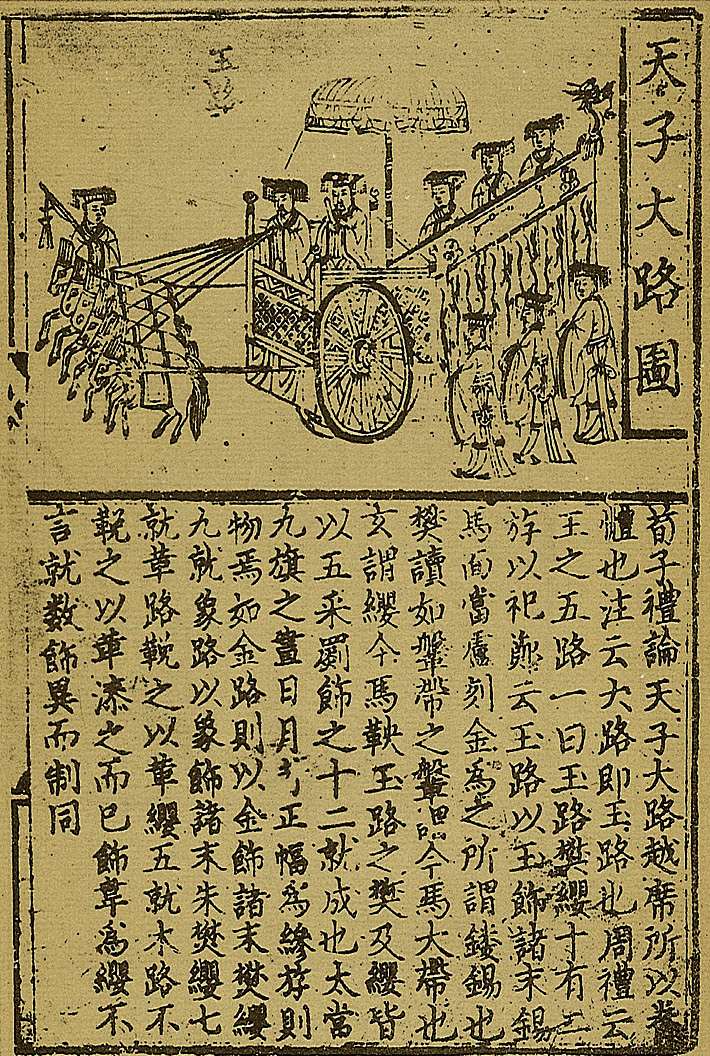 天子大路圖
玉路
荀子禮論天子大路越席所以養
體也注云大路即玉路也周禮云
王之五路一曰玉路樊纓十有二
斿以祀鄭云玉路以玉飾諸末錫
馬面當盧刻金為之所謂鏤錫也
樊讀如鞶帶之鞶謂今馬大帶也
玄謂纓今馬鞅玉路之樊及纓皆
以五采罽飾之十二就成也太當
九旗之畫日月 正幅為縿斿則
物焉如金路則以金飾諸末樊纓
九就象路以象飾諸末朱樊纓七
就革路鞔之以革纓五就木路不
鞔之以革漆之而已飾韋為纓不
言就数飾異而制同